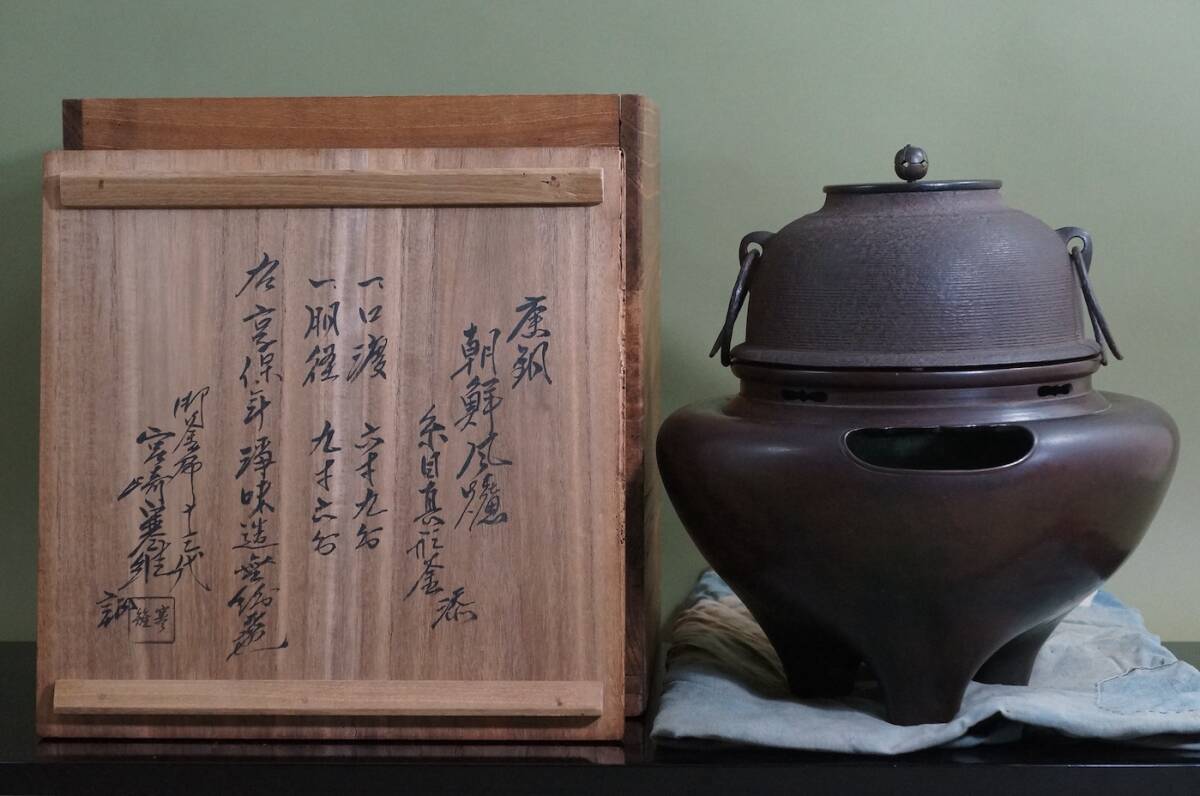 唐銅
朝鮮風爐
糸目真形釜 添
一口渡 六寸九分
一胴径 九寸六分
右享保年浄味造無紛者也
御釜師十三代
宮崎寒雉
寒雉